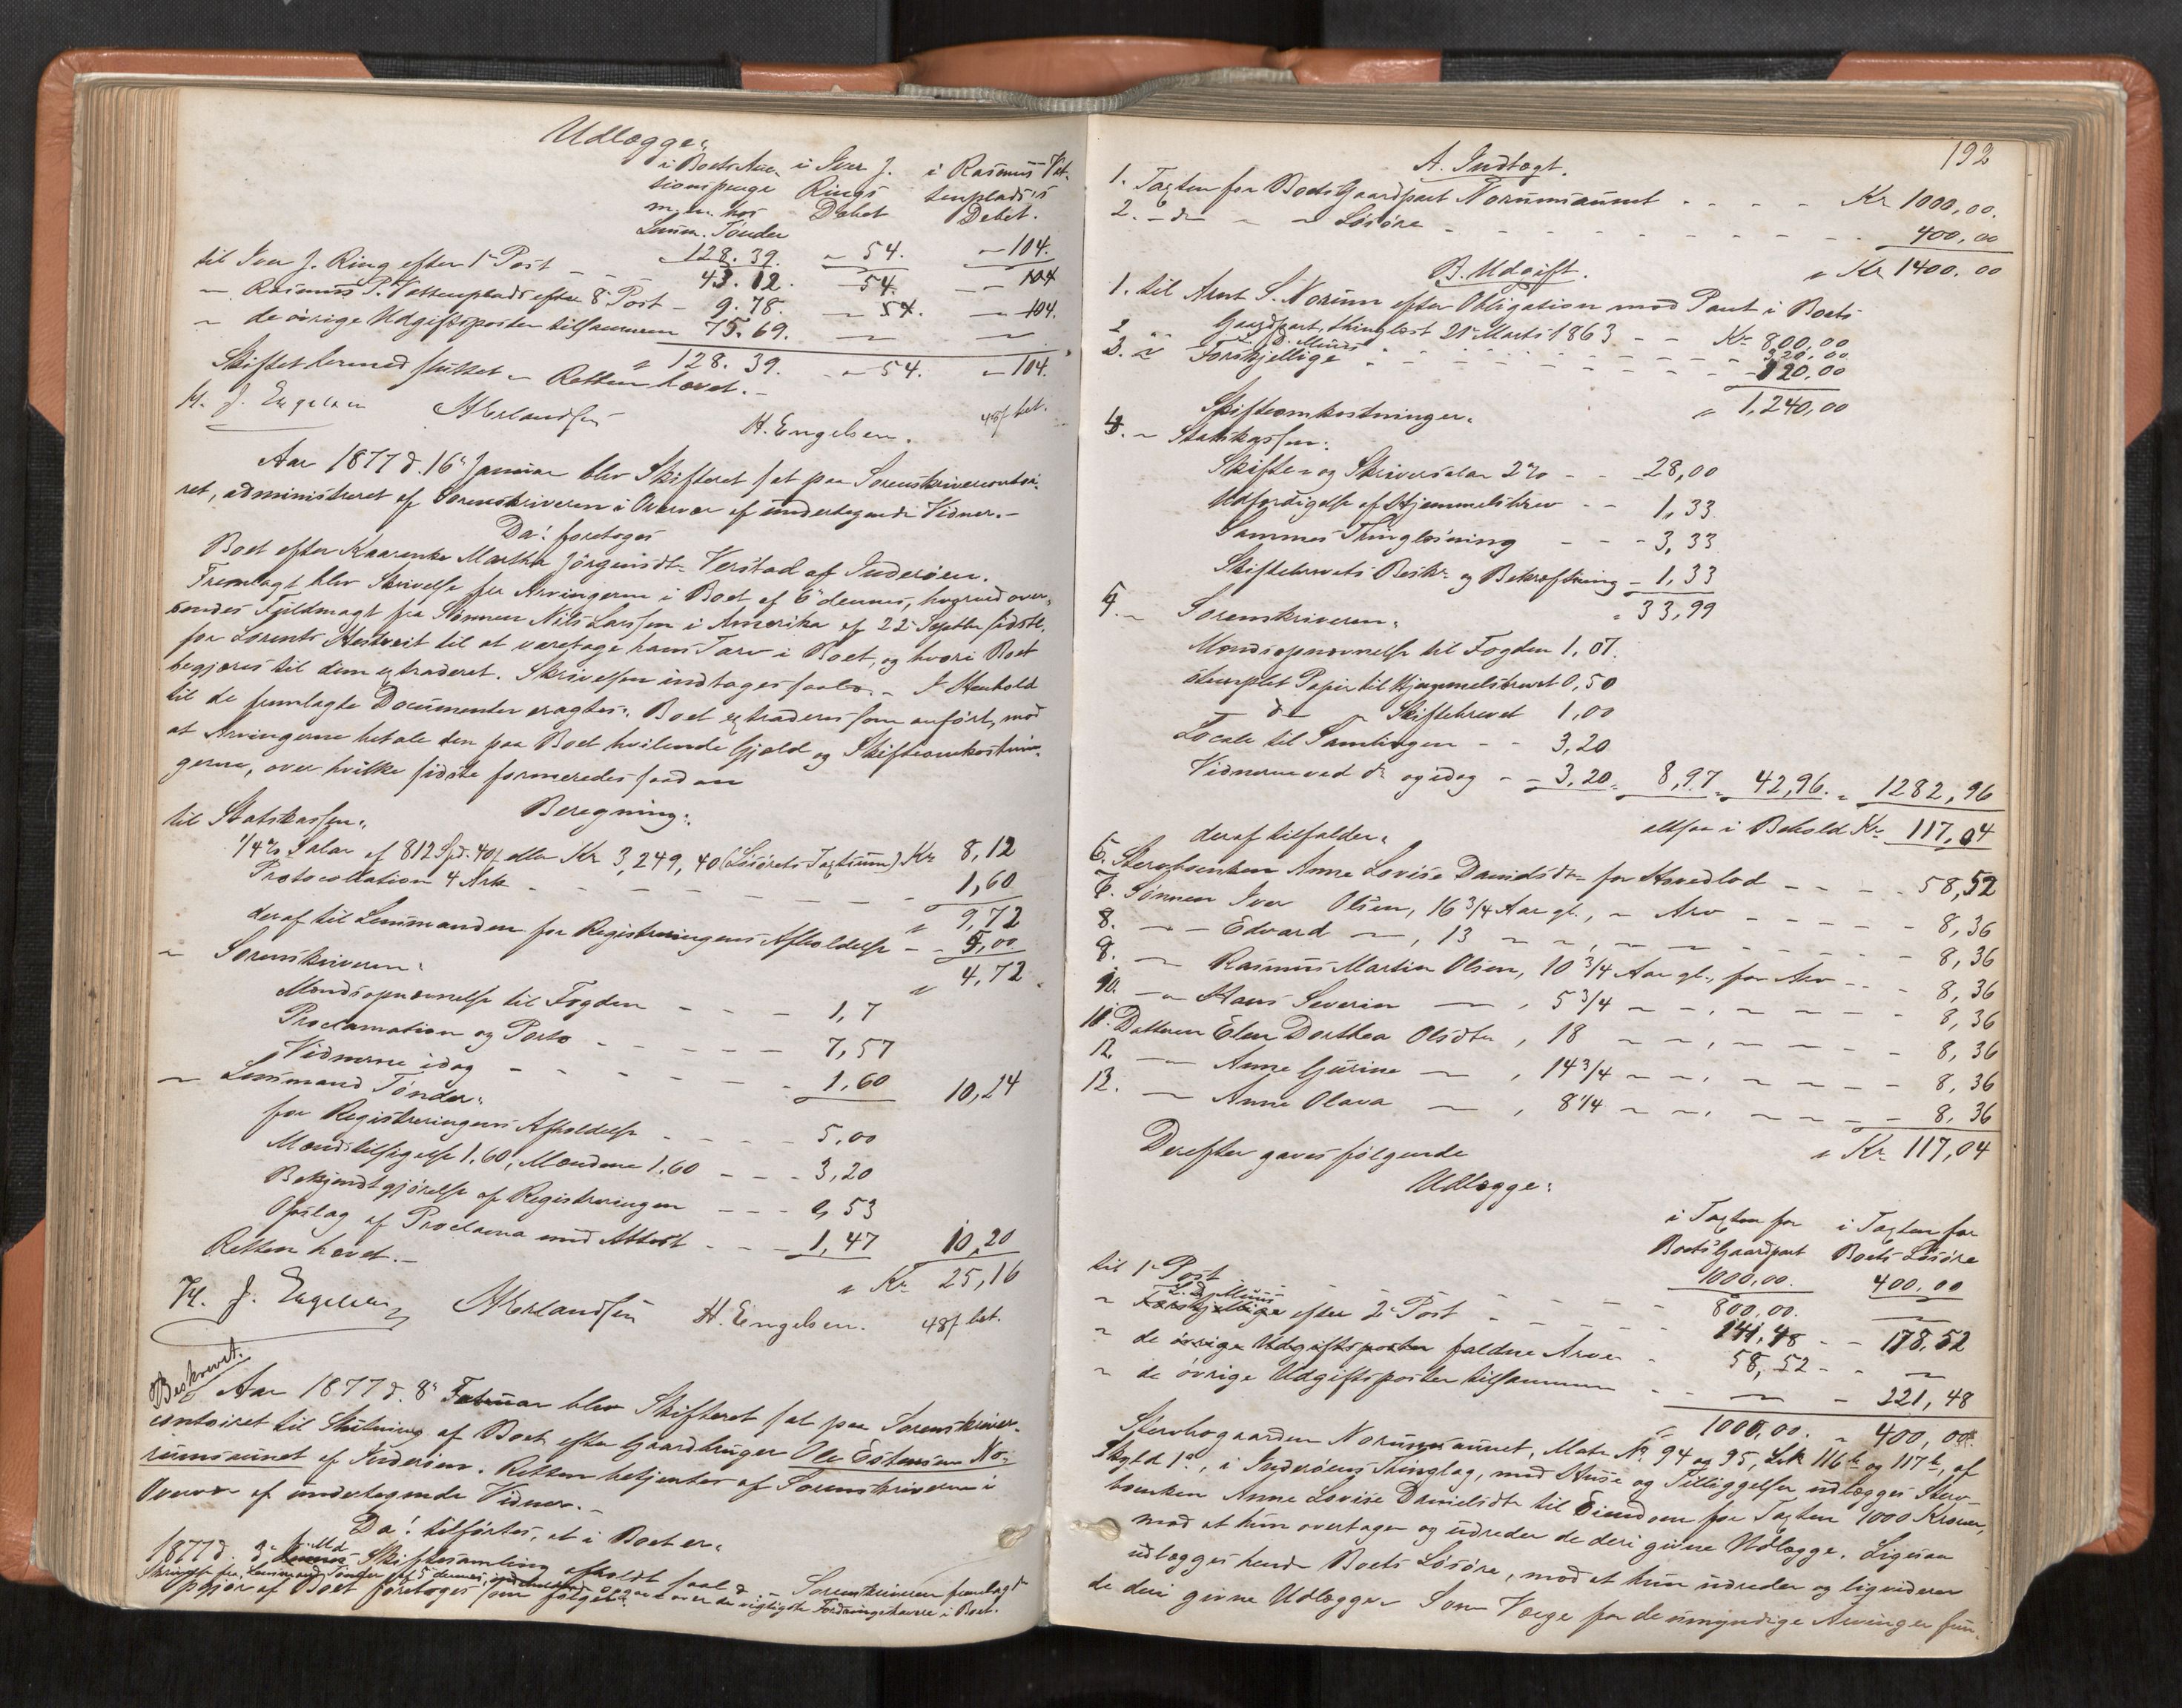 Udlægge:
i Boets Auc- i Iver J. i Rasmus Vat-
tionspenge Rings tenplads's
m. m. hos Debet Debet.
Lensm. Tønder
128. 39. " 54. " 104.
til Iver J. Ring efter 1e Post – – 43. 12. – 54. – 104
" Rasmus P. Vattenplads efter 8e Post – 9. 78. – 54. – 104.
" de øvrige Udgiftsposter tilsammen 75. 69. — —
" 128. 39. " 54. " 104.
Skiftet hermed sluttet. – Retten hævet. –
H. J. Engelsen AErlandsen H. Engelsen. 48f bet.
Aar 1877 d. 16e Januar blev Skifteret sat paa Sorenskrivercontoi-
ret, administreret af Sorenskriveren i Overvær af undertegnede Vidner. –
Da! foretoges
Boet efter Kaarenke Martha Jørgensdtr Verstad af Inderøen.
Fremlagt blev Skrivelse fra Arvingerne i Boet af 6e dennes, hvorved over-
sendes Fuldmagt fra Sønnen Nils Larssen i Amerika af 22e Septbr sidstl.
for Lorents Hestveit til at varetage hans Tarv i Boet, og hvori Boet
begjæres til dem extraderet. Skrivelsen indtages saal. – I Henhold
til de fremlagte Documenter eragtes: Boet extraderes som anført, mod
at Arvingerne betale den paa Boet hvilende Gjæld og Skifteomkostnin-
gerne, over hvilke sidste formeredes saadan
Beregning:
til Statskassen:
1/4 % Salar af 812 Spd. 40f eller Kr 3,249,40 (Løsørets Taxtsum) Kr 8,12
Protocollation 4 Ark – – – – 1,60
" 9,72
deraf til Lensmanden for Registreringens Afholdelse – – 5,00
" 4,72
" Sorenskriveren:
Mændsopnævnelse til Fogden – – – 1,7
Proclamation og Porto – – – 7,57
Vidnerne idag – – – 1,60 10,24
" Lensmand Tønder:
for Registreringens Afholdelse – – – 5,00
Mændstilsigelse 1.60, Mændene 1.60 – – – 3,20
Bekjendtgjørelse af Registreringen – – – 0,53
Opslag af Proclama med Attest – – – 1,47 10,20
" Kr 25,16
Retten hævet. –
H. J. Engelsen AErlandsen H. Engelsen. 48f bet.
Beskrevet.
Aar 1877 d. 8e Februar blev Skifteret sat paa Sorenskriver-
contoiret til Slutning af Boet efter Gaardbruger Ole Estensen No-
rumsaunet af Inderøen. Retten betjentes af Sorenskriveren i
Overvær af undertegnede Vidner. –
Da! tilførtes, at i Boet er:
1877 d. 3e f. Md Skiftesamling afholdt saal. – Sorenskriveren fremlagde
Skrivelse fra Lensmand Tønder af 5 dennes, opgave over de vigtigste Fordringshavere i Boet.
pgjør af Boet foretoges som følger:
192
A. Indtægt.
1. Taxten for Boets Gaardpart Norumsaunet – – – – Kr 1000,00.
2. – do – – – Løsøre – – – – – 400,00
" Kr 1400.00
B. Udgift.
1. til Arnt S. Norum efter Obligation mod Pant i Boets
Gaardpart, thinglæst 21e Marts 1863 – – Kr 800,00
2. " L. d. Muus – – – – 320,00
3. " Forskjellige – – – – – 120,00
" 1,240,00
Skifteomkostninger.
4. " Statskassen:
Skifte- og Skriversalar 2% – – 28,00
Udfærdigelse af Hjemmelsbrev – – 1,33
Sammes Thinglæsning – – – 3,33
Skiftebrevets Beskr. og Bekræftning – 1,33
" 33,99
5. " Sorenskriveren:
Mændsopnævnelse til Fogden 1,07.
stemplet Papir til Hjemmelsbrevet 0,50
– do – " Skiftebrevet 1,00
Locale til Samlingen – – 3,20
Vidnerne ved do og idag – – 3,20. 8,97. 42,96. " 1282,96
altsaa i Behold Kr 117,04
deraf tilfalder:
6. Stervboenken Anne Lovise Danielsdtr for Hovedlod – – – 58,52
7. Sønnen Iver Olsen, 16 3/4 Aar gl., " Arv – – – 8,36
8. – " – Edvard — , 13 " " , – – – 8,36
9. – " Rasmus Martin Olsen, 10 3/4 Aar gl., for Arv – – 8,36
10. – " Hans Severin — , 5 3/4 – " – – – 8,36
11. Datteren Elen Dorthea Olsdtr , 18 – – , – – – 8,36
12. — Anne Gurine — , 14 3/4 – – , – – – 8,36
13. — Anne Olava — , 8 1/4 – – , – – – 8,36
" Kr 117,04
Derefter gaves følgende
Udlægge:
i Taxten for i Taxten for
Boets Gaardpart Boets Løsøre
1000,00. 400,00
til 1e Post – – – – 800,00. —
" L. d. Muus Forskjellige efter 2e Post – – – 141,48 – – 178,52
" de øvrige Udgiftsposter faldne Arver – 58,52 – –
" de øvrige Udgiftsposter tilsammen – – — – 221,48
" 1000,00. " 400,00.
Stervbogaarden Norumsaunet, Matr No 94 og 95, Lit 116b og 117b, af
Skyld 1o, i Inderøens Thinglag, med Huse og Tilliggelser udlægges Sterv-
boenken Anne Lovise Danielsdtr til Eiendom for Taxten 1000 Kroner,
mod at hun overtager og udreder de deri givne Udlægge. Ligesaa
udlægges hende Boets Løsøre, mod at hun udreder og ligviderer
de deri givne Udlægge. Som Værge for de umyndige Arvinger fun-